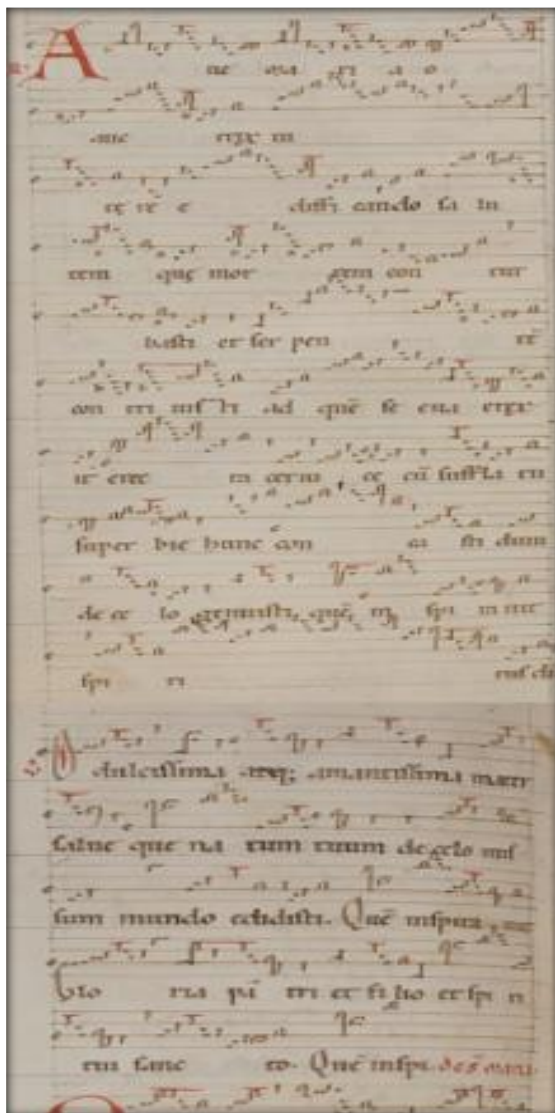 R. A ue ma ri a o
auc trix ui
tę re e difi cando sa lu
tem quę mor tem con tur
basti et ser pen tē
con tri uisti ad quē se eua erex
it erec ta cerui ce cū suffla tu
super bie hunc con ca sti dum
de ce lo genuisti, quē in spi rauit
spi ri tus di
V. O dulcissima atq; amantissima mater
salue que na tum tuum de celo mis
sum mundo edidisti. Quē inspira
Glo ria pa tri et fi lio et spi ri
tui sanc to. Quē inspi. de s̄ maria